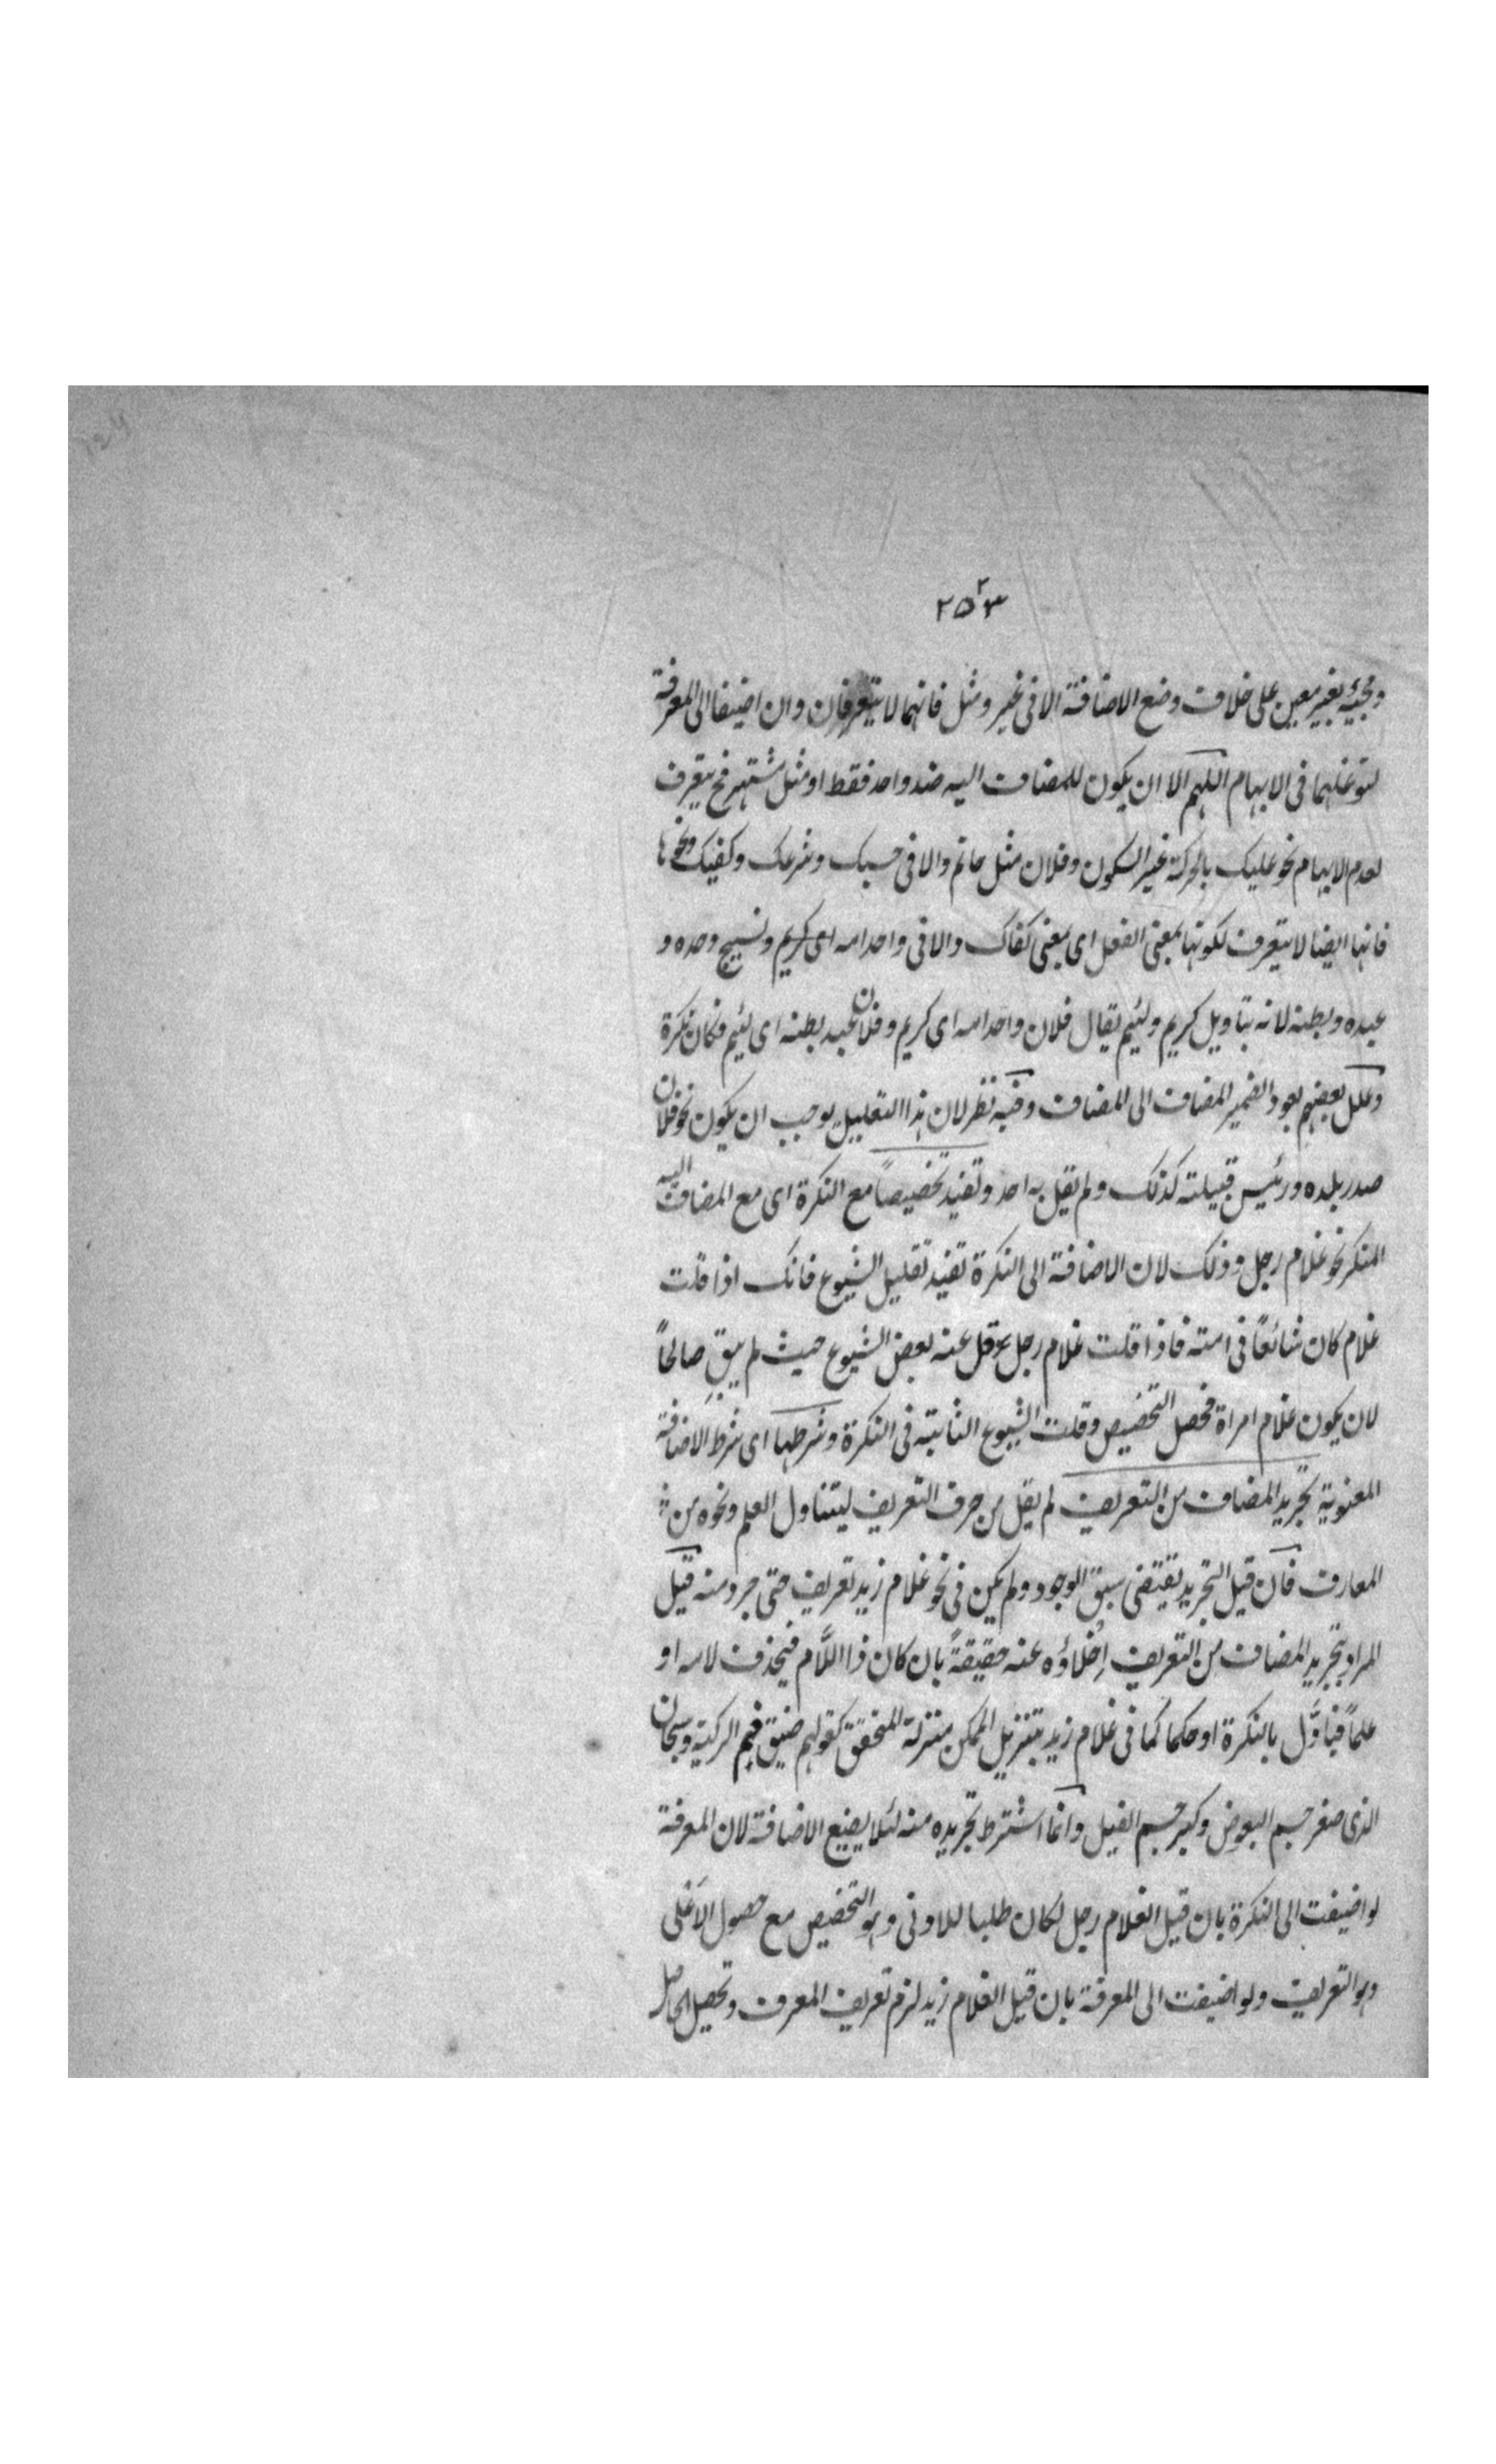 ٢٥٣
ومجيئه بغير معين على خلاف وضع الاضافة الا فى غير ومثل فانهما لا يتعرفان وان اضيفا الى المعرفة
لتوغلهما فى الابهام اللهم الا ان يكون للمضاف اليه ضد واحد فقط او مثل مشتهر فح يتعرف
لعدم الابهام نحو عليك بالحركة غير السكون وفلان مثل حاتم والا فى حسبك وشرعك وكفيك ونحوها
فانها ايضا لا يتعرف لكونها بمعنى الفعل اى بمعنى كفاك والا فى واحد امه اى كريم ونسيج وحده و
عبده وبطنه لانه بتاويل كريم ولئيم يقال فلان واحد امه اى كريم وفلان عبد بطنه اى لئيم فكان نكرة
وعلل بعضهم بعود الضمير المضاف الى المضاف وفيه نظر لان هذا التعليل يوجب ان يكون نحو فلان
صدر بلده ورئيس قبيلته كذلك ولم يقل به احد وتفيد تخصيصاً مع النكرة اى مع المضاف اليه
المنكر نحو غلام رجل وذلك لان الاضافة الى النكرة تفيد تقليل الشيوع فانك اذا قلت
غلام كان شائعاً فى امته فاذا قلت غلام رجل قل عنه بعض الشيوع حيث لم يبق صالحاً
لان يكون غلام امراة فحصل التخصيص وقلت الشيوع الثابتة فى النكرة وشرطها اى شرط الاضافة
المعنوية تجريد المضاف من التعريف لم يقل من حرف التعريف ليتناول العلم ونحوه من
المعارف فان قيل التجريد يقتضى سبق الوجود ولم يكن فى نحو غلام زيد تعريف حتى جرد منه قيل
المراد بتجريد المضاف من التعريف إخلاؤه عنه حقيقةً بان كان ذا اللَّام فيحذف لامه او
علماً فياوَّل بالنكرة او حكما كما فى غلام زيد بتنزيل الممكن منزلة المتحقق كقولهم ضيق فم الركية وسبحان
الذى صغر جسم البعوض وكبر جسم الفيل وانما اشترط تجريده منه لئلا يضيع الاضافة لان المعرفة
لو اضيفت الى النكرة بان قيل الغلام رجل لكان طلبا للادنى وهو التخصيص مع حصول الاعلى
وهو التعريف ولو اضيفت الى المعرفة بان قيل الغلام زيد لزم تعريف المعرف وتحصيل الحاصل